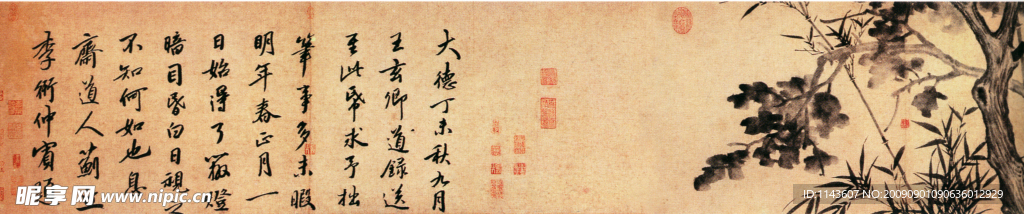 大德丁未秋九月
王玄卿道錄送
至此帋求予拙
筆事多未暇
明年春正月一
日始得了燈
暗目昏白日視
不知何如也息
齋道人薊丘
李衎仲賓題
昵享网 www.nipic.cn
ID:1143607 NO:20090901090636012929